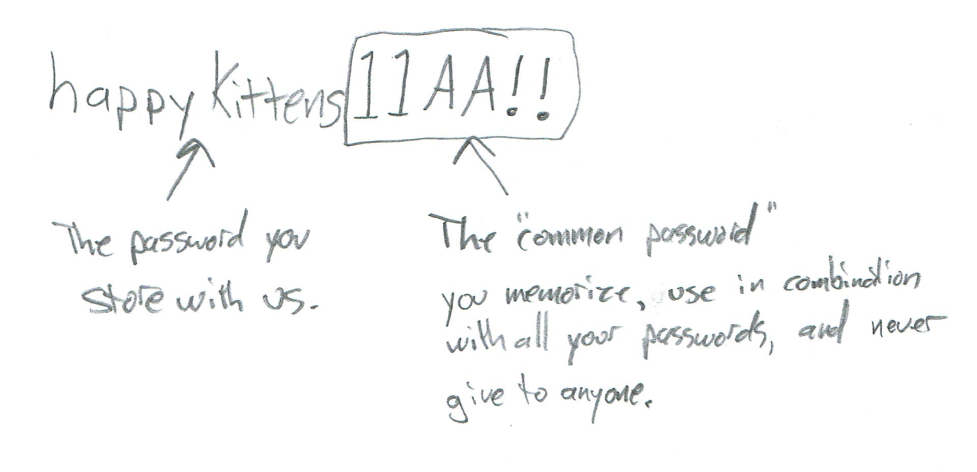 happyKittens11AA!!
The password you
store with us.
The "common password"
you memorize, use in combination
with all your passwords, and never
give to anyone.